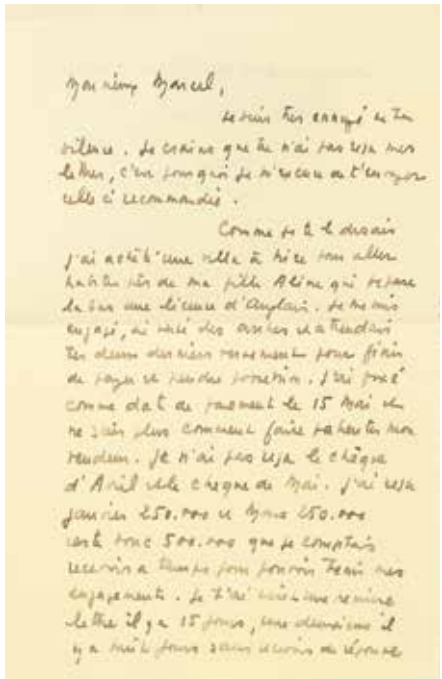 Mon vieux Marcel,
Je suis très ennuyé de ton
silence. Je crains que tu n'ai pas reçu mes
lettres, c'est pourquoi je m'excuse de t'envoyer
celle ci recommandée.
Comme je te le disais
j'ai acheté une villa à Nice pour aller
habiter près de ma fille Aline qui prépare
là bas une licence d'Anglais. Je me suis
engagé, ai versé des arrhes et attendais
tes deux derniers versements pour finir
de payer et prendre possession. J'ai fixé
comme date de paiement le 15 Mai et
ne sais plus comment faire patienter mon
vendeur. Je n'ai pas reçu le chèque
d'Avril et le chèque de Mai. J'ai reçu
Janvier 250.000 et Mars 250.000
reste donc 500.000 que je comptais
recevoir à temps pour pouvoir tenir mes
engagements. Je t'ai écrit une première
lettre il y a 15 jours, une deuxième il
y a huit jours sans recevoir de réponse